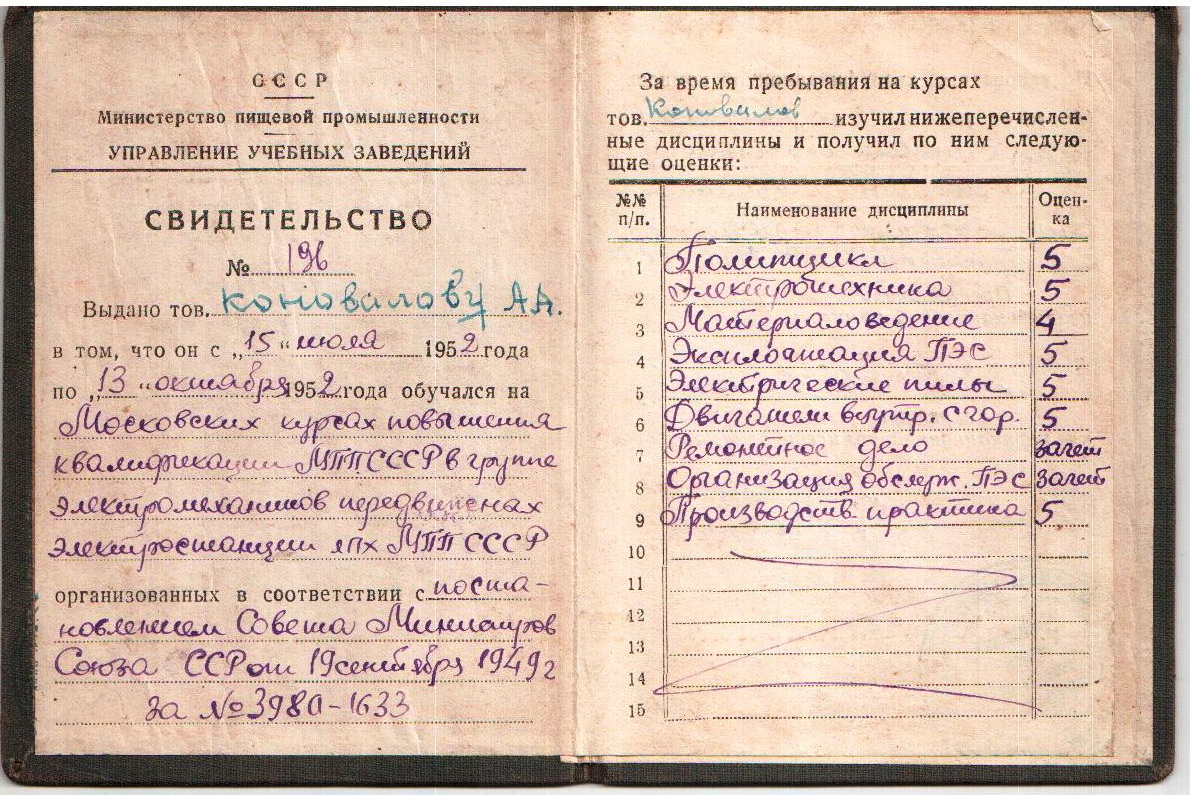 СССР
Министерство пищевой промышленности
УПРАВЛЕНИЕ УЧЕБНЫХ ЗАВЕДЕНИЙ
СВИДЕТЕЛЬСТВО
№ 196
Выдано тов. Коновалову А.А.
в том, что он с „15“ июля 1952 года
по „13“ октября 1952 года обучался на
Московских курсах повышения
квалификации МППСССР в группе
электромехаников передвижных
электростанции ЛПХ МПП СССР
организованных в соответствии с поста-
новлением Совета Министров
Союза ССР от 19 сентября 1949 г
за №3980-1633
За время пребывания на курсах
тов. Коновалов изучил нижеперечислен-
ные дисциплины и получил по ним следую-
щие оценки:
№№ п/п. Наименование дисциплины Оцен-ка
1 Политцикл 5
2 Электротехника 5
3 Материаловедение 4
4 Эксплоатация ПЭС 5
5 Электрические пилы 5
6 Двигатели внутр. сгор. 5
7 Ремонтное дело зачет
8 Организация обслуж. ПЭС зачет
9 Производств. практика 5
10
11
12
13
14
15